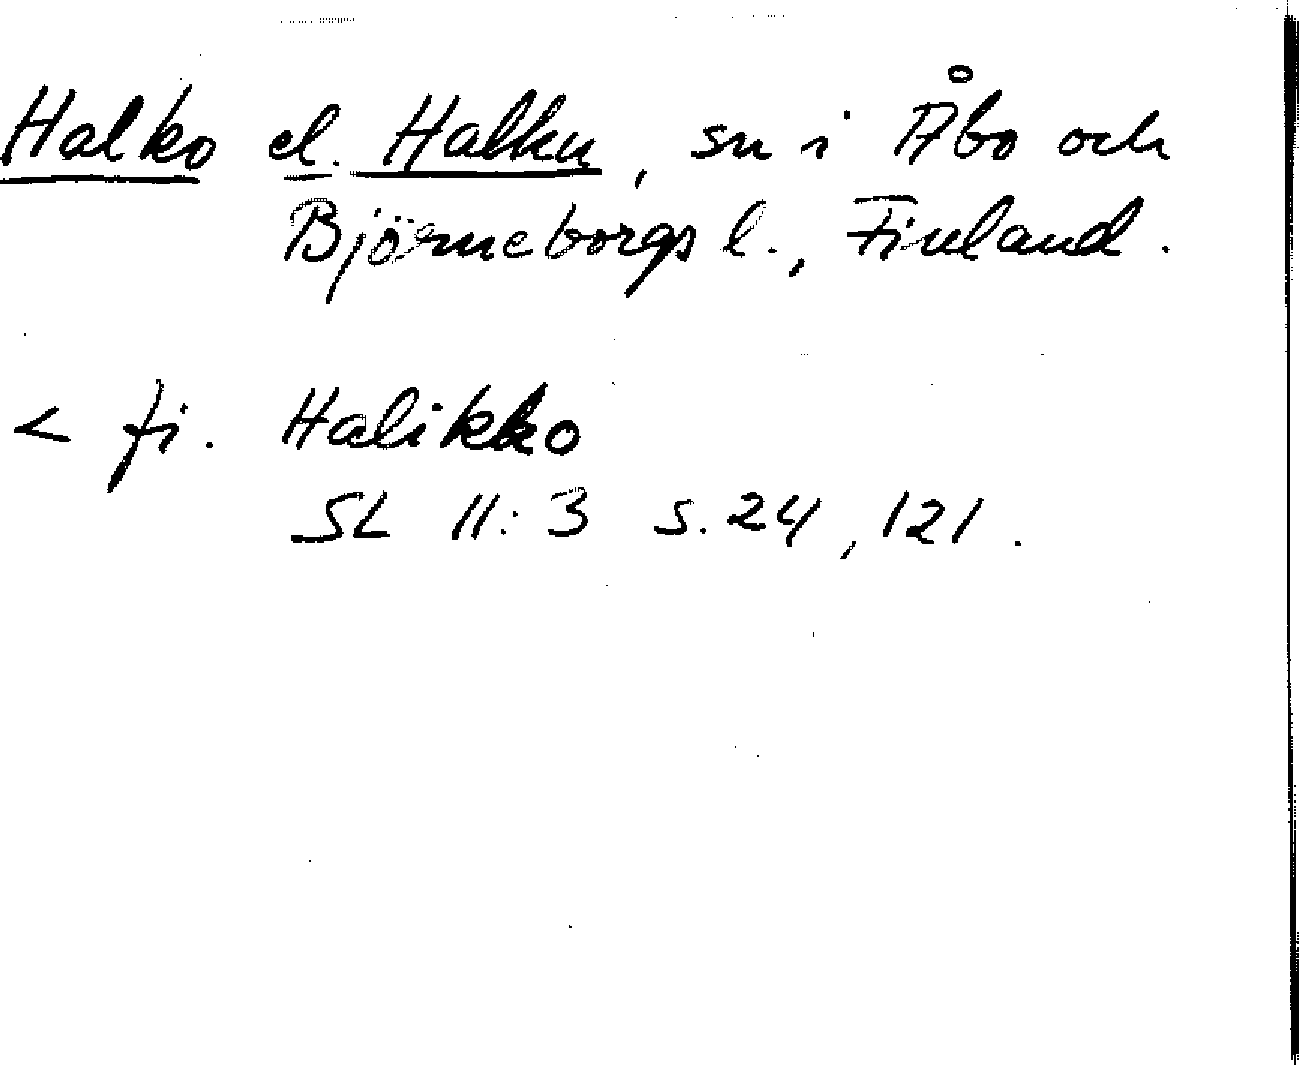 Halko el. Halku, sn i Åbo och
Björneborgs l., Finland.
< fi. Halikko
SL II:3 s. 24, 121.